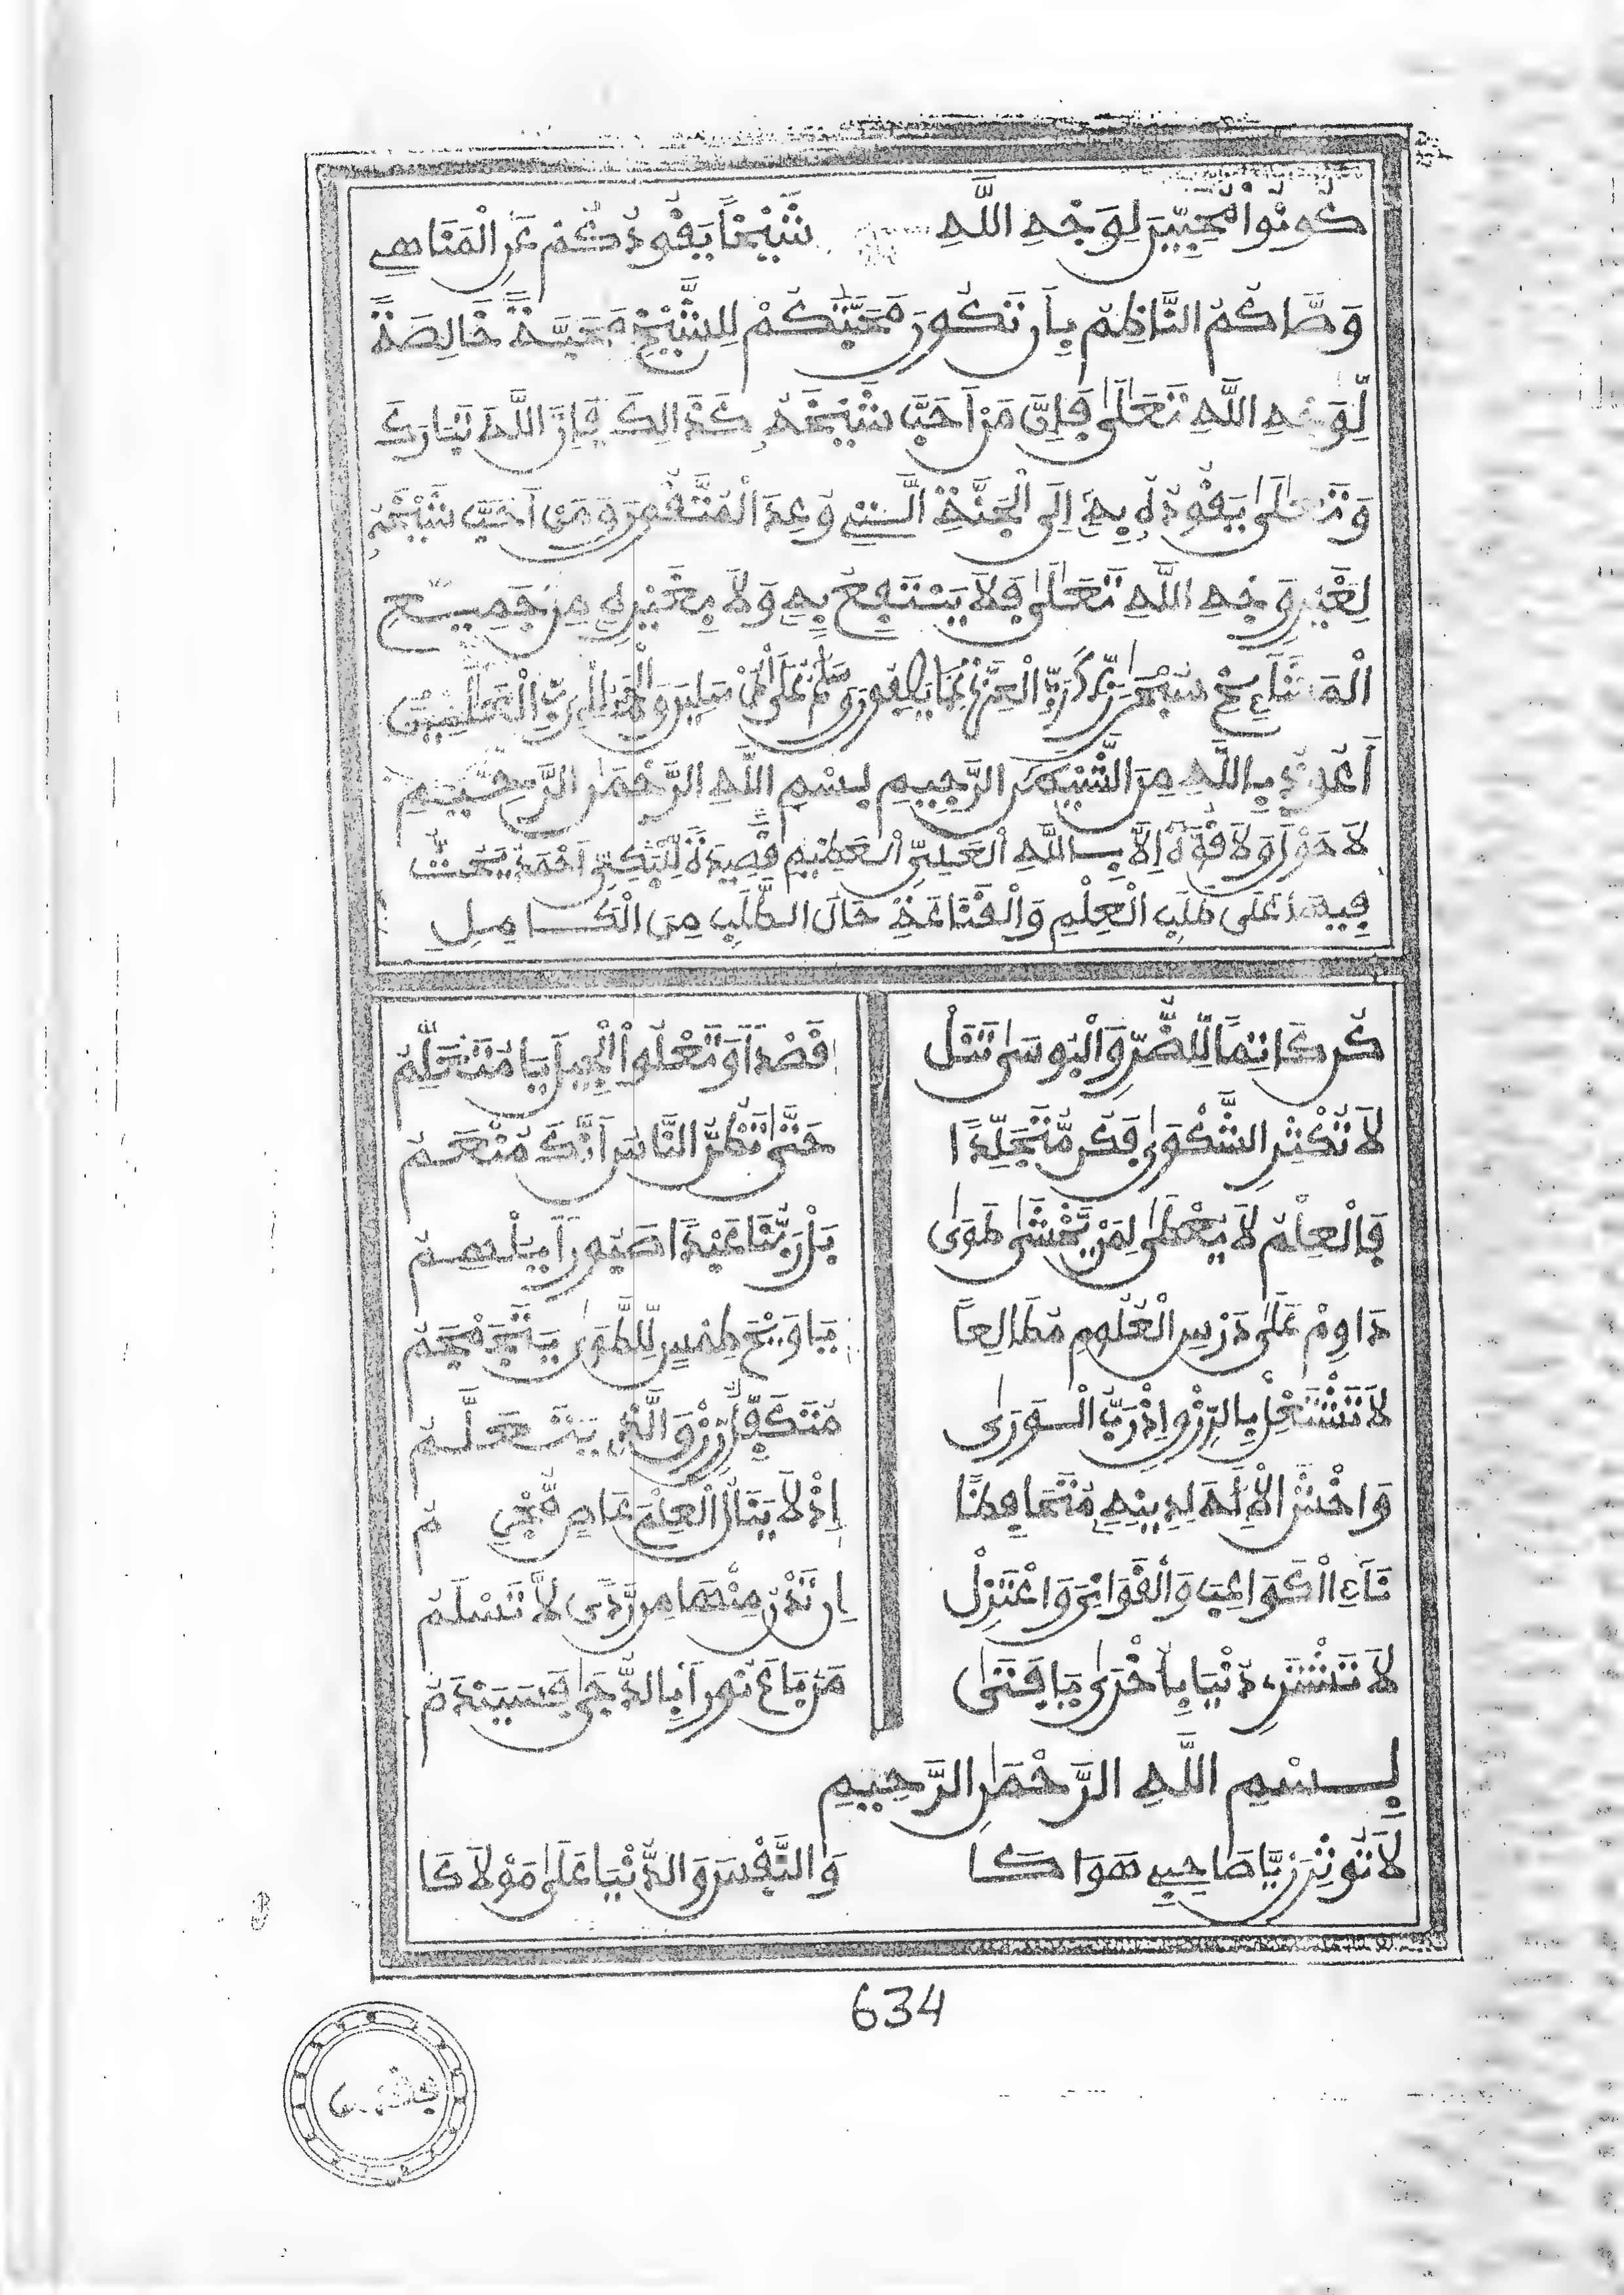 كُونُوا مُحِبِّينَ لِوَجْهِ اللَّهِ شَيْخًا يَقُودُكُمْ عَنِ الْمَنَاهِي
وَصَّاكُمُ النَّاظِمُ بِأَن تَكُونَ مَحَبَّتُكُمْ لِلشَّيْخِ مَحَبَّةً خَالِصَةً
لِّوَجْهِ اللَّهِ تَعَالَى فَإِنَّ مَنْ أَحَبَّ شَيْخَهُ كَذَالِكَ فَإِنَّ اللَّهَ تَبَارَكَ
وَتَعَالَى يَقُودُهُ بِهِ إِلَى الْجَنَّةِ الَّتِي وُعِدَ الْمُتَّقُونَ وَمَنْ أَحَبَّ شَيْخَهُ
لِغَيْرِ وَجْهِ اللَّهِ تَعَالَى فَلَا يَنْتَفِعُ بِهِ وَلَا بِغَيْرِهِ مِن جَمِيعِ
الْمَشَايِخِ سُبْحَانَ رَبِّكَ رَبِّ الْعِزَّةِ عَمَّا يَصِفُونَ وَسَلَامٌ عَلَى الْمُرْسَلِينَ وَالْحَمْدُ لِلَّهِ رَبِّ الْعَالَمِينَ
أَعُوذُ بِاللَّهِ مِنَ الشَّيْطَانِ الرَّجِيمِ بِسْمِ اللَّهِ الرَّحْمَنِ الرَّحِيمِ
لَا حَوْلَ وَلَا قُوَّةَ إِلَّا بِاللَّهِ الْعَلِيِّ الْعَظِيمِ قَصِيدَةٌ لِّلْبَكِّيِّ أَحْمَدَ يَحُثُّ
فِيهَا عَلَى طَلَبِ الْعِلْمِ وَالْقَنَاعَةِ حَالَ الطَّلَبِ مِنَ الْكَامِلِ
كُن كَاتِمًا لِّلضُّرِّ وَالْبُوسَى تَنَلْ قَصْدًا وَتَعْلُو الْجِيلَ يَا مُتَعَلِّمُ
لَا تُكْثِرِ الشَّكْوَى فَكُن مُّتَجَلِّدًا حَتَّى تَظُنَّ النَّاسُ أَنَّكَ مُنْعَمُ
فَالْعِلْمُ لَا يُعْطَى لِمَن يَّخْشَى طَوَى بَلْ رَبُّنَا عَبْدًا صَبُورًا يُلْهِمُ
دَاوِمْ عَلَى دَرْسِ الْعُلُومِ مُطَالِعًا يَا وَيْحَ طِمْسٍ لِّلطَّوَى
لَا تَشْتَغِلْ بِالرِّزْقِ إِذْ رَبُّ الْوَرَى مُتَكَفِّلٌ رِزْقَ الَّذِي يَتَعَلَّمُ
وَاخْشَ الْإِلَهَ لِدِينِهِ مُتَحَافِظًا إِذْ لَا يَنَالُ الْعِلْمَ عَاصٍ مُّجْرِمُ
نَاءِ الْكَوَاعِبَ وَالْغَوَانِيَ وَاعْتَزِلْ إِن تَدْنُ مِنْهَا مِن رَّدًى لَا تَسْلَمُ
لَا تَشْتَرِ دُنْيَا بِأُخْرَى يَا فَتَى مَن بَاعَ نُورًا بِالدُّجَى فَسَيَنْدَمُ
بِسْمِ اللَّهِ الرَّحْمَنِ الرَّحِيمِ
لَا تُوثِرَنْ يَّا صَاحِبِي هَوَاكَا وَالنَّفْسَ وَالدُّنْيَا عَلَى مَوْلَاكَا
634